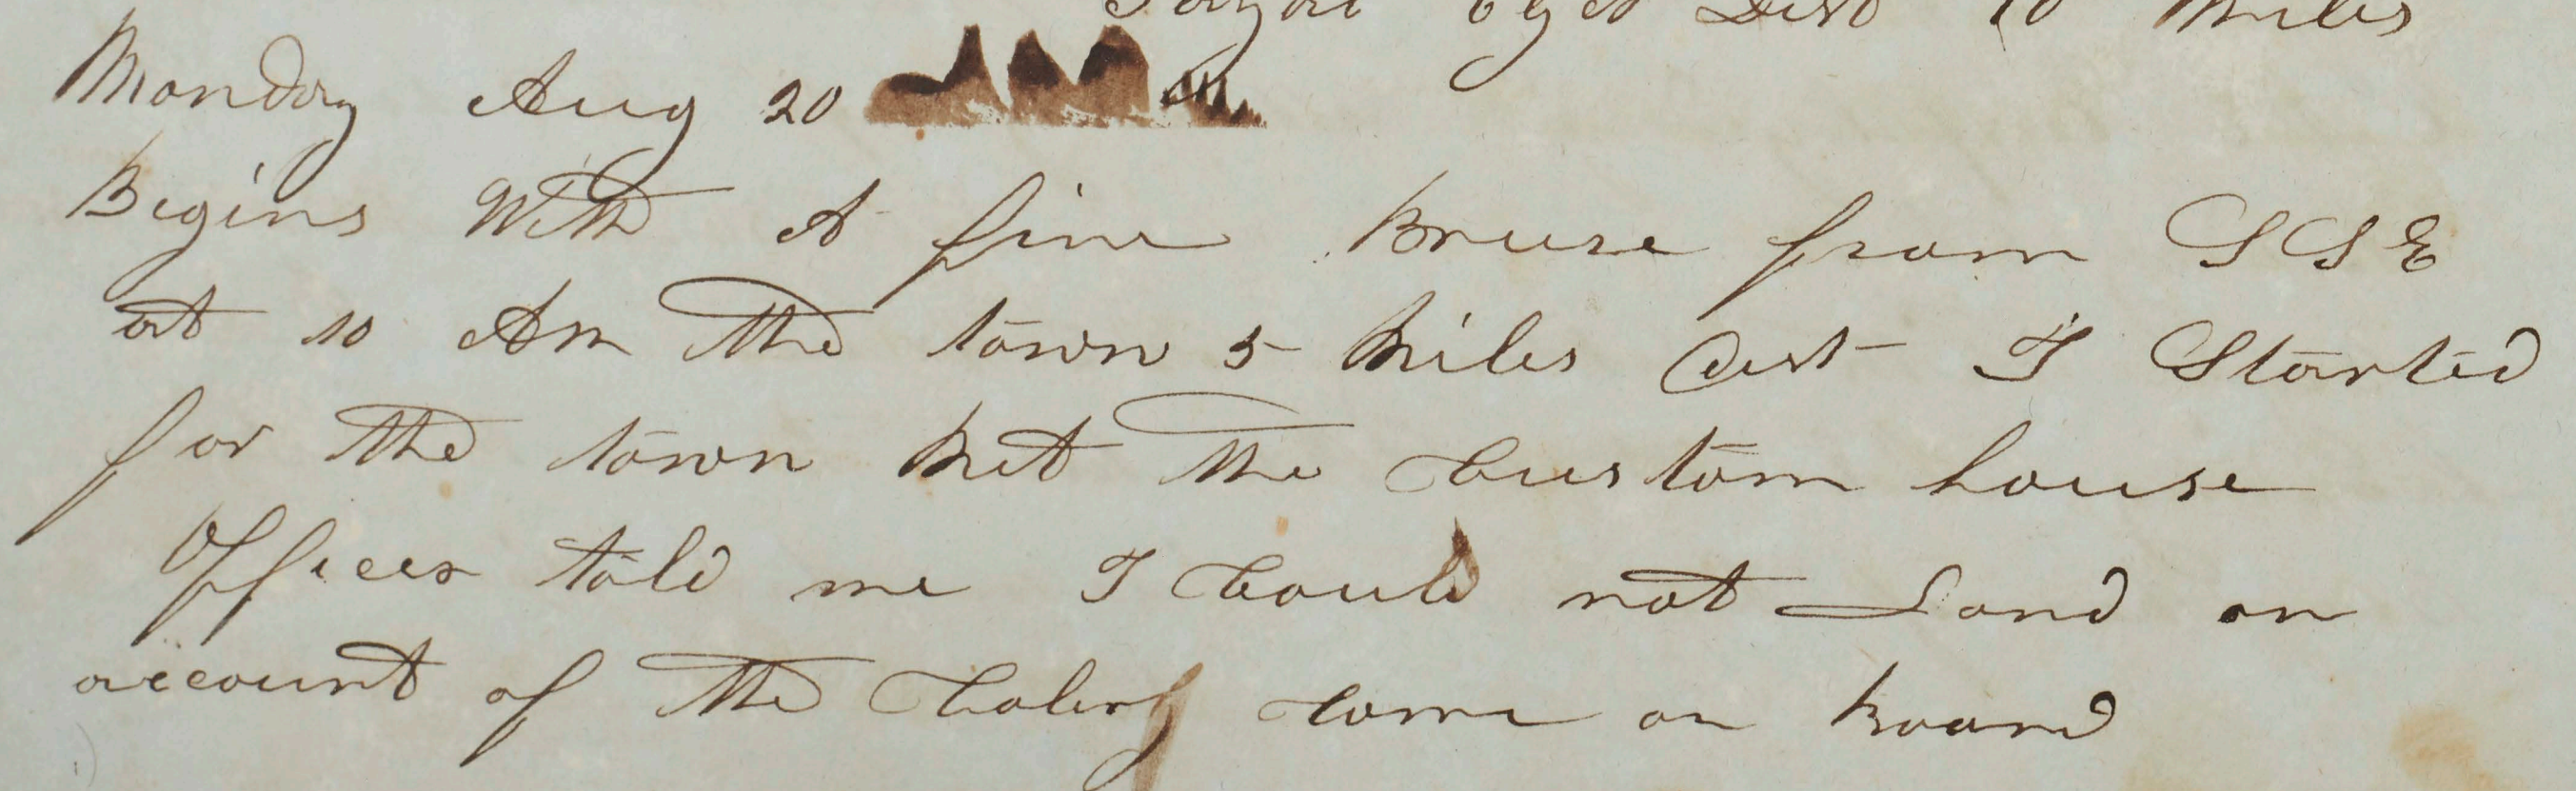 Dist 10 Miles
Monday Aug 20
Begins With A fine Breese from SSE
at 10 Am the town 5 Miles Dist I Started
for the town but the Custom house
Officer told me I Could not Land on
account of the Colery Came on board